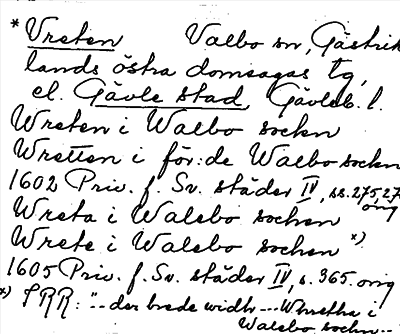 * Vreten Valbo sn, Gästrik
lands östra domsagas tg,
el. Gävle stad, Gävleb. l.
Wreten i Walbo socken
Wretten i för:de Walbo socken
1602 Priv. f. Sv. städer IV, ss. 275, 27
orig
Wreta i Walebo sochen
Wrete i Walebo sochen *)
1605 Priv. f. Sv. städer IV, s. 365 orig
*) SRR: "-- der brede widh --- Whretha i
Walebo sochn --